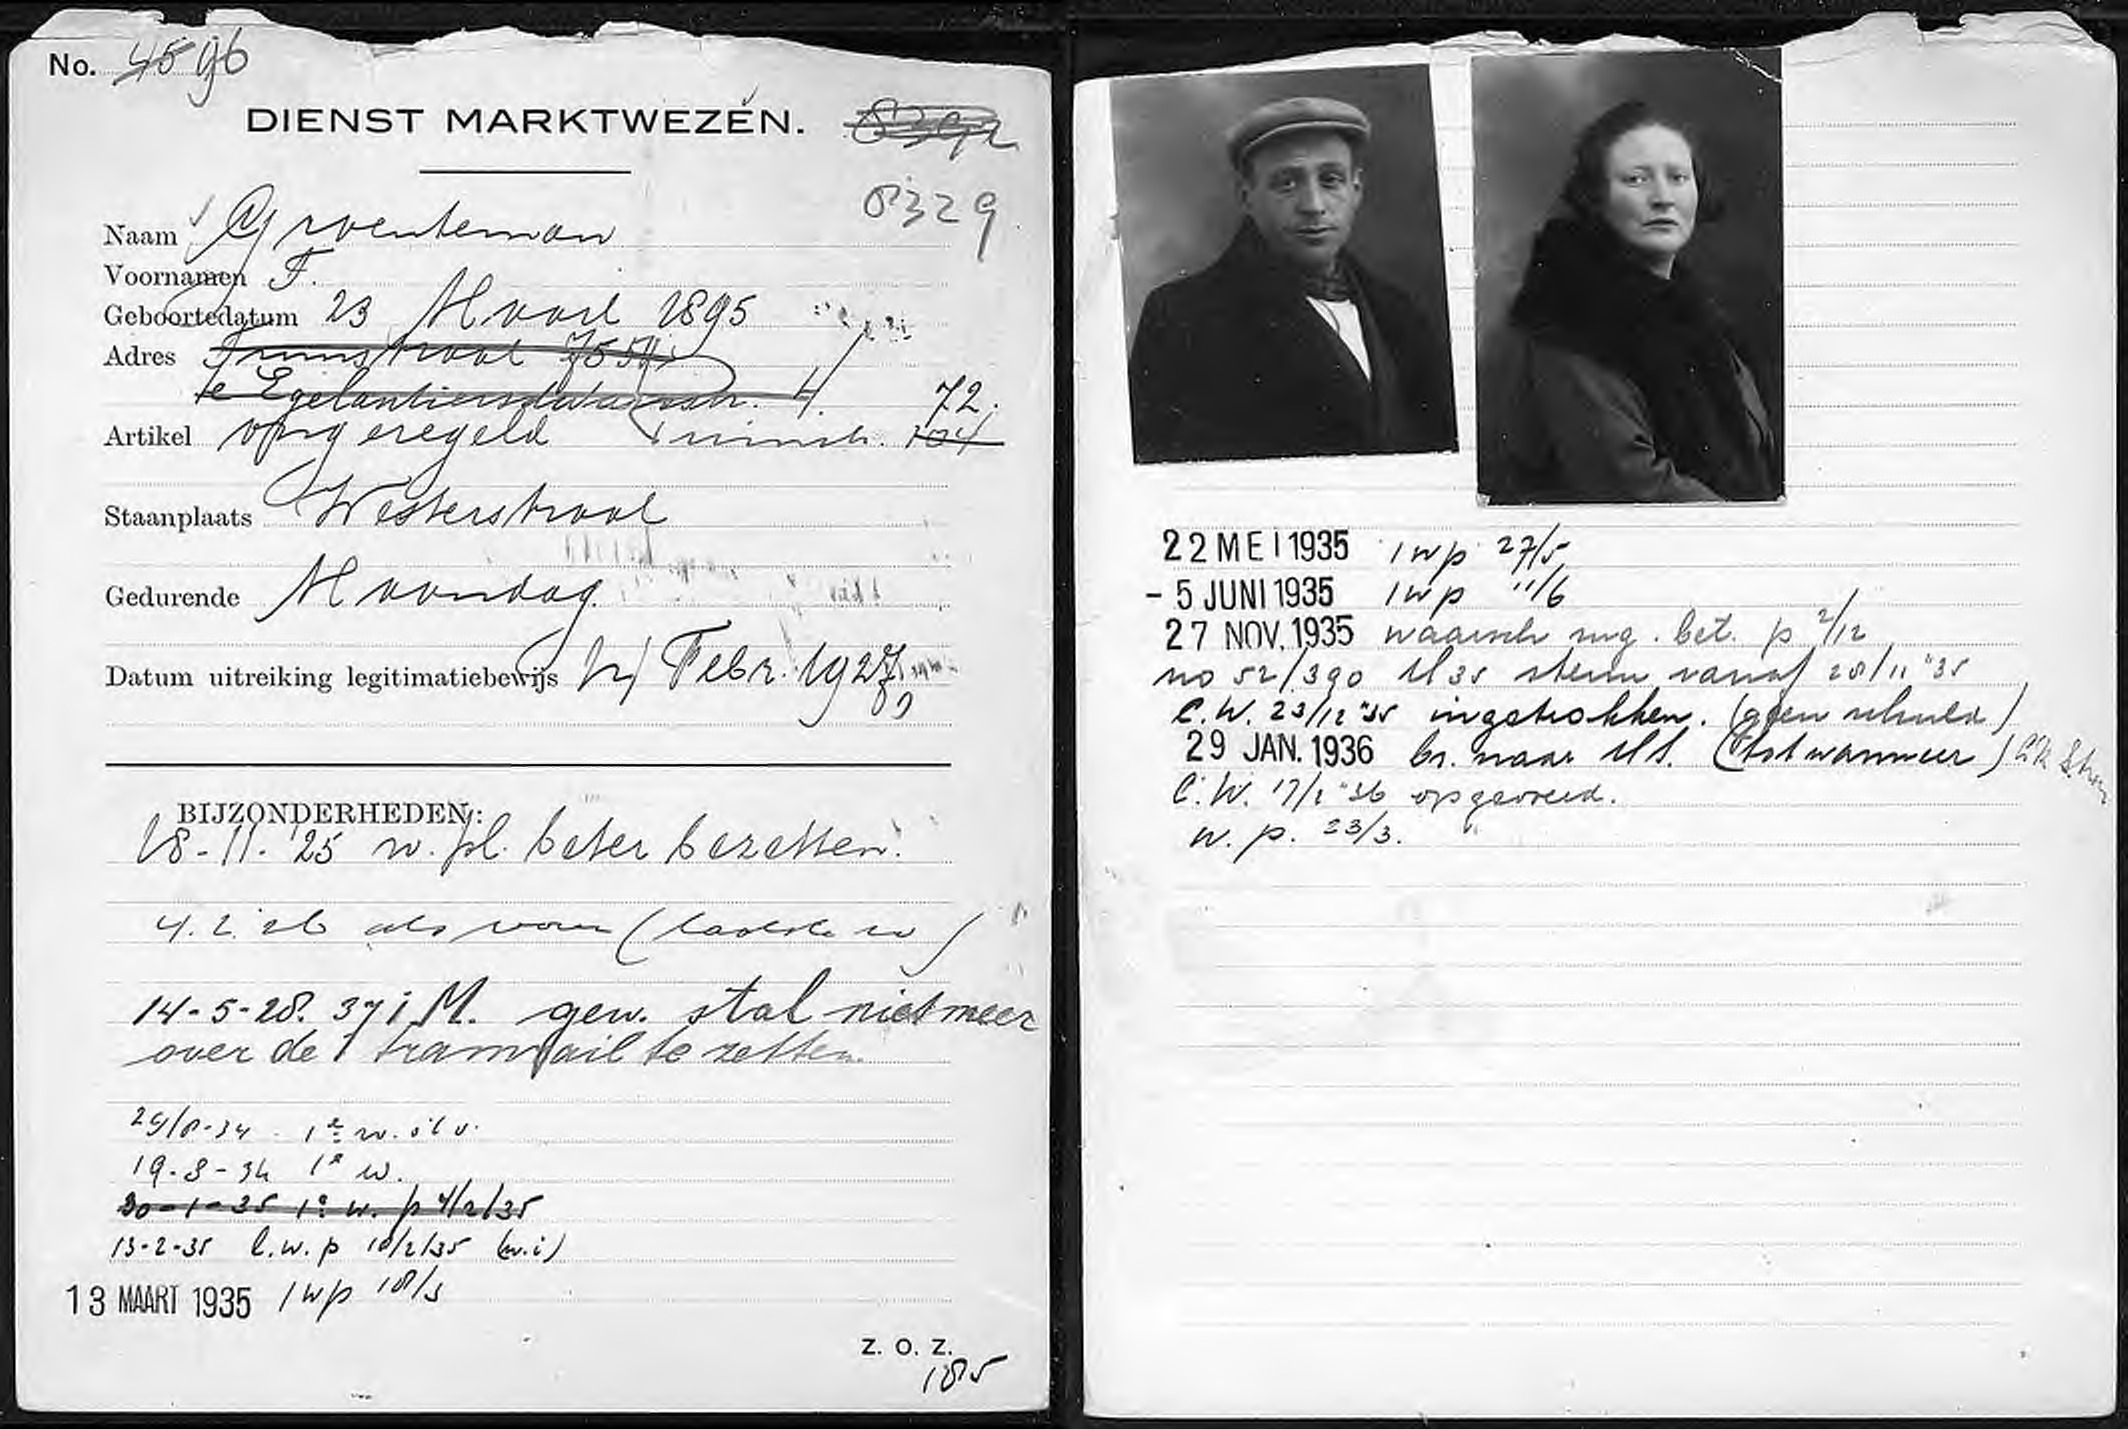 No. 4596
DIENST MARKTWEZEN.
8329
Naam Groenteman
Voornamen F.
Geboortedatum 23 Maart 1895
Adres Tuinstraat
1e Egelantiersdwarsstr. 4.
72.
Artikel ongeregeld Tuinstr. 104
Staanplaats Westerstraat
Gedurende Maandag.
Datum uitreiking legitimatiebewijs Febr. 1927
BIJZONDERHEDEN:
18-11-'25 w.pl. beter bezetten.
4.2.26 als voren (laatste w)
14-5-28. 371 M. gew. stal niet meer
over de tramrail te zetten.
29/8-34 1e w.
19-9-34 1e w.
30-1-35 1e w. p 4/2/35
13-2-35 l.w.p 18/2/35 (w.i)
13 MAART 1935 1wp 18/3
Z. O. Z.
185
22 MEI 1935 1wp 27/5
- 5 JUNI 1935 1wp 11/6
27 NOV. 1935 waarsch. bet. p 2/12
no 52/390 M35 steun vanaf 28/11 '35
C.W. 23/12 '35 ingetrokken. (geen schuld)
29 JAN. 1936 br. naar (tot wanneer)
C.W. '36
w. p. 23/3.